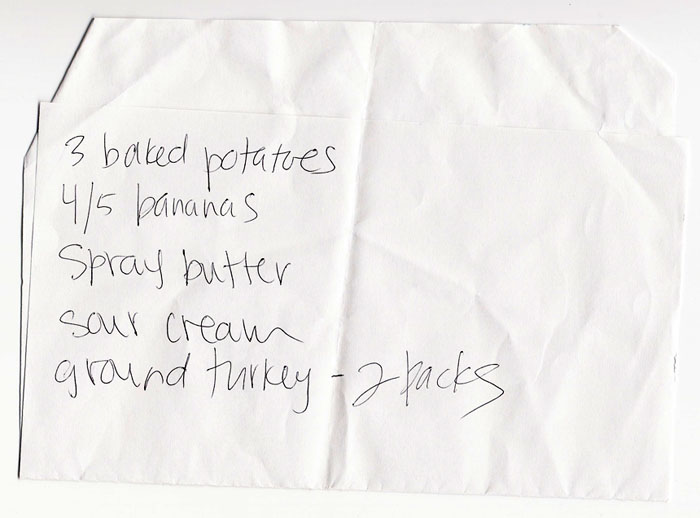 3 baked potatoes
4/5 bananas
Spray butter
sour cream
ground turkey - 2 packs